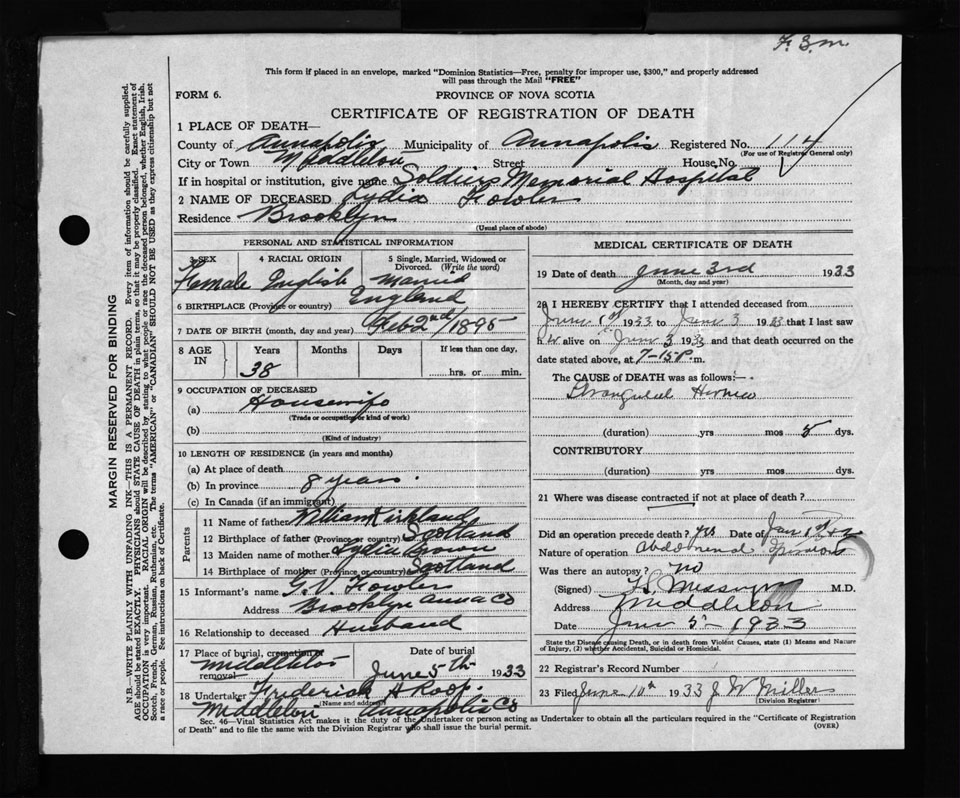 F. S. M.
This form if placed in an envelope, marked "Dominion Statistics—Free, penalty for improper use, $300," and properly addressed
will pass through the Mail "FREE"
FORM 6.
PROVINCE OF NOVA SCOTIA
CERTIFICATE OF REGISTRATION OF DEATH
1 PLACE OF DEATH—
County of Annapolis Municipality of Annapolis Registered No. 114
(For use of Registrar General only)
City or Town Middleton Street House No.
If in hospital or institution, give name Soldiers Memorial Hospital
2 NAME OF DECEASED Lydia Fowler
Residence Brooklyn
(Usual place of abode)
PERSONAL AND STATISTICAL INFORMATION
3 SEX 4 RACIAL ORIGIN 5 Single, Married, Widowed or
Divorced. (Write the word)
Female English Married
6 BIRTHPLACE (Province or country) England
7 DATE OF BIRTH (month, day and year) Feb 2nd/1895
8 AGE IN Years Months Days If less than one day,
38 hrs. or min.
9 OCCUPATION OF DECEASED
(a) Housewife
(Trade or occupation or kind of work)
(b)
(Kind of industry)
10 LENGTH OF RESIDENCE (in years and months)
(a) At place of death
(b) In province 8 years.
(c) In Canada (if an immigrant)
Parents
11 Name of father William Kirkland
12 Birthplace of father (Province or country) Scotland
13 Maiden name of mother Lydia Brown
14 Birthplace of mother (Province or country) Scotland
15 Informant's name G. V. Fowler
Address Brooklyn Anna Co
16 Relationship to deceased Husband
17 Place of burial, cremation or removal Date of burial
Middleton June 5th 1933
18 Undertaker Frederick A Roop.
(Name and address)
Middleton Annapolis Co
MEDICAL CERTIFICATE OF DEATH
19 Date of death June 3rd 1933
(Month, day and year)
20 I HEREBY CERTIFY that I attended deceased from
June 1st 1933 to June 3 1933 that I last saw
her alive on June 3 1933 and that death occurred on the
date stated above, at 7-15 P. m.
The CAUSE of DEATH was as follows:—
Strangulated Hernia
(duration) yrs mos 5 dys.
CONTRIBUTORY
(duration) yrs mos dys.
21 Where was disease contracted if not at place of death?
Did an operation precede death? yes Date of
Nature of operation Abdominal
Was there an autopsy? no
(Signed) M.D.
Address Middleton
Date June 5 - 1933
State the Disease causing Death, or in death from Violent Causes, state (1) Means and Nature
of Injury, (2) whether Accidental, Suicidal or Homicidal.
22 Registrar's Record Number
23 Filed June 10th 1933 J W Miller
(Division Registrar)
Sec. 46—Vital Statistics Act makes it the duty of the Undertaker or person acting as Undertaker to obtain all the particulars required in the "Certificate of Registration
of Death" and to file the same with the Division Registrar who shall issue the burial permit.
(OVER)
MARGIN RESERVED FOR BINDING
N.B.—WRITE PLAINLY WITH UNFADING INK—THIS IS A PERMANENT RECORD. Every item of information should be carefully supplied.
AGE should be stated EXACTLY. PHYSICIANS should STATE CAUSE OF DEATH in plain terms, so that it may be properly classified. Exact statement of
OCCUPATION is very important. RACIAL ORIGIN will be described by stating to what people or race the deceased person belonged, whether English, Irish,
Scotch, French, German, Russian, Ruthenian, etc. The terms "AMERICAN" or "CANADIAN" SHOULD NOT BE USED as they express citizenship but not
a race or people. See instructions on back of Certificate.